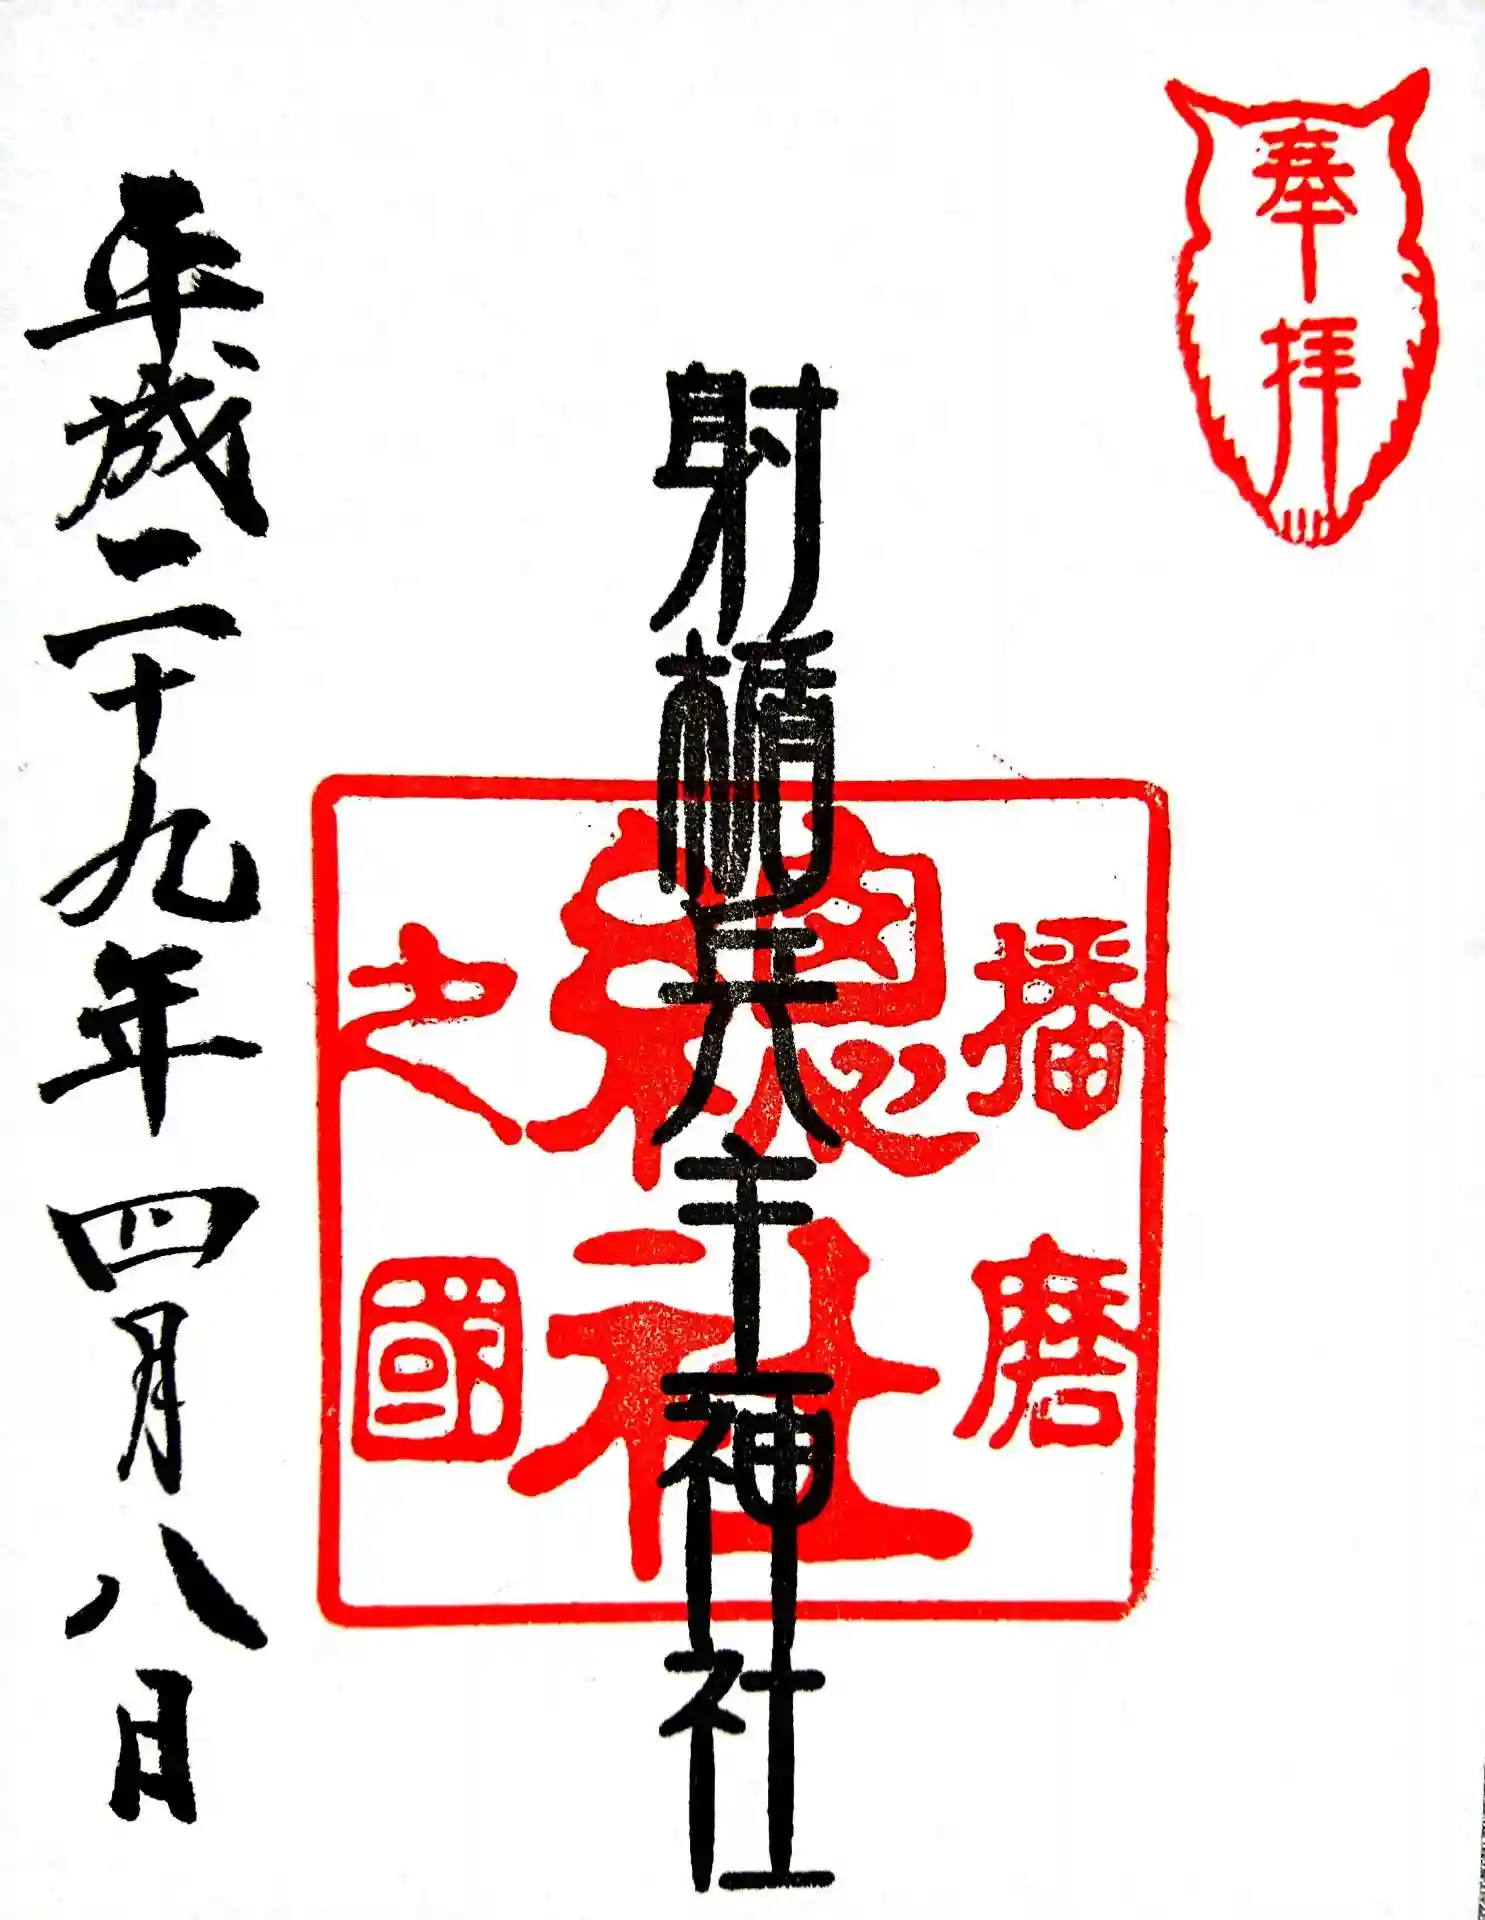 奉拝
射楯兵主神社
播磨
總社
之國
平成二十九年四月八日